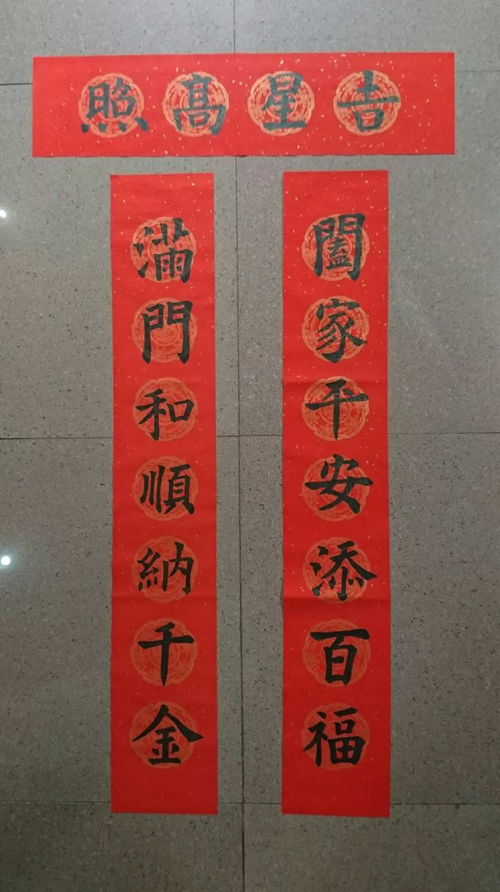 吉星髙照
闔家平安添百福
滿門和順納千金